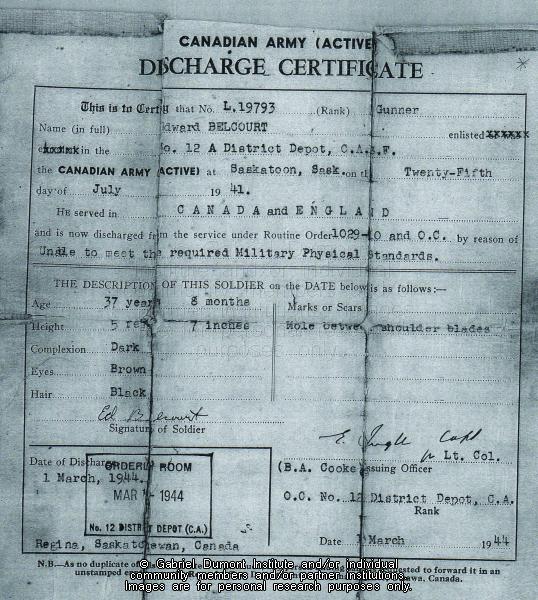 CANADIAN ARMY (ACTIVE
DISCHARGE CERTIFICATE
This is to Certify that No. L.19793 (Rank) Gunner
Name (in full) dward BELCOURT enlisted xxxxxx
in the o. 12 A District Depot, C.A.A.F.
the CANADIAN ARMY (ACTIVE) at Saskatoon, Sask. on th Twenty-Fifth
day of July 19 41.
HE served in CANADA and ENGLAND
and is now discharged from the service under Routine Order 1029-10 and O.C. by reason of
Unable to meet the required Military Physical Standards.
THE DESCRIPTION OF THIS SOLDIER on the DATE below is as follows:—
Age 37 years 8 months Marks or Scars
Height 5 feet 7 inches Mole between shoulder blades
Complexion Dark
Eyes Brown
Hair Black
Ed Belcourt
Signature of Soldier
Capt
Lt. Col.
(B.A. Cooke Issuing Officer
O.C. No. 12 District Depot, C.A.
Rank
Date 1 March 1944
Date of Discharge
1 March, 1944.
ORDERLY ROOM
MAR 1944
No. 12 DISTRICT DEPOT (C.A.)
Regina, Saskatchewan, Canada
N.B.—As no duplicate of
unstamped
to forward it in an
Canada.
© Gabriel Dumont Institute and/or individual
community members and/or partner institutions.
Images are for personal research purposes only.